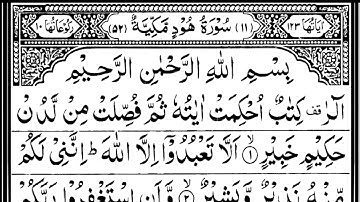 اٰيَاتُهَا ١٢٣ (١١) سُوْرَةُ هُوْدٍ مَكِّيَّةٌ (٥٢) رُكُوْعَاتُهَا ١٠
بِسْمِ اللّٰهِ الرَّحْمٰنِ الرَّحِيْمِ
الٓرٰ قف كِتٰبٌ اُحْكِمَتْ اٰيٰتُهٗ ثُمَّ فُصِّلَتْ مِنْ لَّدُنْ
حَكِيْمٍ خَبِيْرٍ ۙ﴿۱﴾ اَلَّا تَعْبُدُوْۤا اِلَّا اللّٰهَ ؕ اِنَّنِيْ لَكُمْ
مِّنْهُ نَذِيْرٌ وَّبَشِيْرٌ ۙ﴿۲﴾ وَّاَنِ اسْتَغْفِرُوْا رَبَّكُمْ